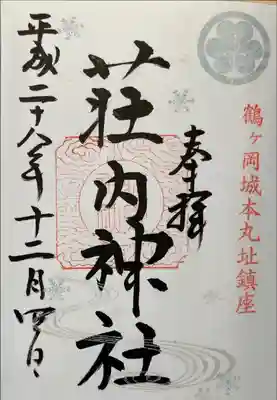 鶴ヶ岡城本丸址鎮座
奉拝
荘内神社
平成二十八年十二月四日